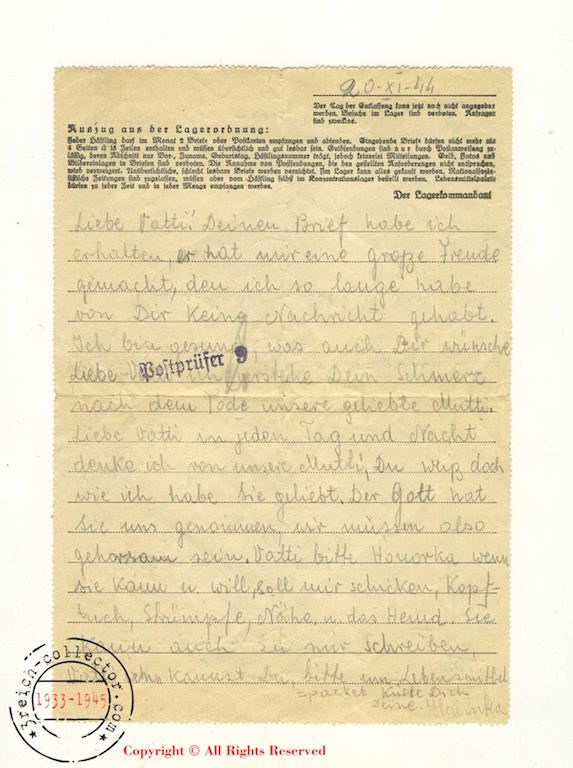 20·XI·44
Der Tag der Entlassung kann jetzt noch nicht angegeben
werden. Besuche im Lager sind verboten. Anfragen
sind zwecklos.
Auszug aus der Lagerordnung:
Jeder Häftling darf im Monat 2 Briefe oder Postkarten empfangen und absenden. Eingehende Briefe dürfen nicht mehr als
4 Seiten à 15 Zeilen enthalten und müssen übersichtlich und gut lesbar sein. Geldsendungen sind nur durch Postanweisung zu-
lässig, deren Abschnitt nur Vor-, Zuname, Geburtstag, Häftlingsnummer trägt, jedoch keinerlei Mitteilungen. Geld, Fotos und
Bildereinlagen in Briefen sind verboten. Die Annahme von Postsendungen, die den gestellten Anforderungen nicht entsprechen,
wird verweigert. Unübersichtliche, schlecht lesbare Briefe werden vernichtet. Im Lager kann alles gekauft werden. Nationalsozia-
listische Zeitungen sind zugelassen, müssen aber vom Häftling selbst im Konzentrationslager bestellt werden. Lebensmittelpakete
dürfen zu jeder Zeit und in jeder Menge empfangen werden.
Der Lagerkommandant
Liebe Vatti! Deinen Brief habe ich
erhalten, er hat mir eine große Freude
gemacht, den ich so lange habe
von Dir keine Nachricht gehabt.
Ich bin gesund, was auch Dir wünsche
Liebe Postprüfer 9 verstehe Dein Schmerz
nach dem Tode unsere geliebte Mutti.
Liebe Vatti in jeden Tag und Nacht
denke ich von unsere Mutti, Du weiß doch
wie ich habe Sie geliebt. Der Gott hat
Sie uns genommen, wir müssen also
gehorsam sein. Vatti bitte Honorka wenn
sie kann u. will, soll mir schicken, Kopf-
tuch, Strümpfe, Nähe. u. das Hemd. Sie
kann auch zu mir schreiben,
kannst Du, bitte um Lebensmittel
=packet Küsse Dich
Deine
3reich-collector.com
1933-1945
Copyright © All Rights Reserved